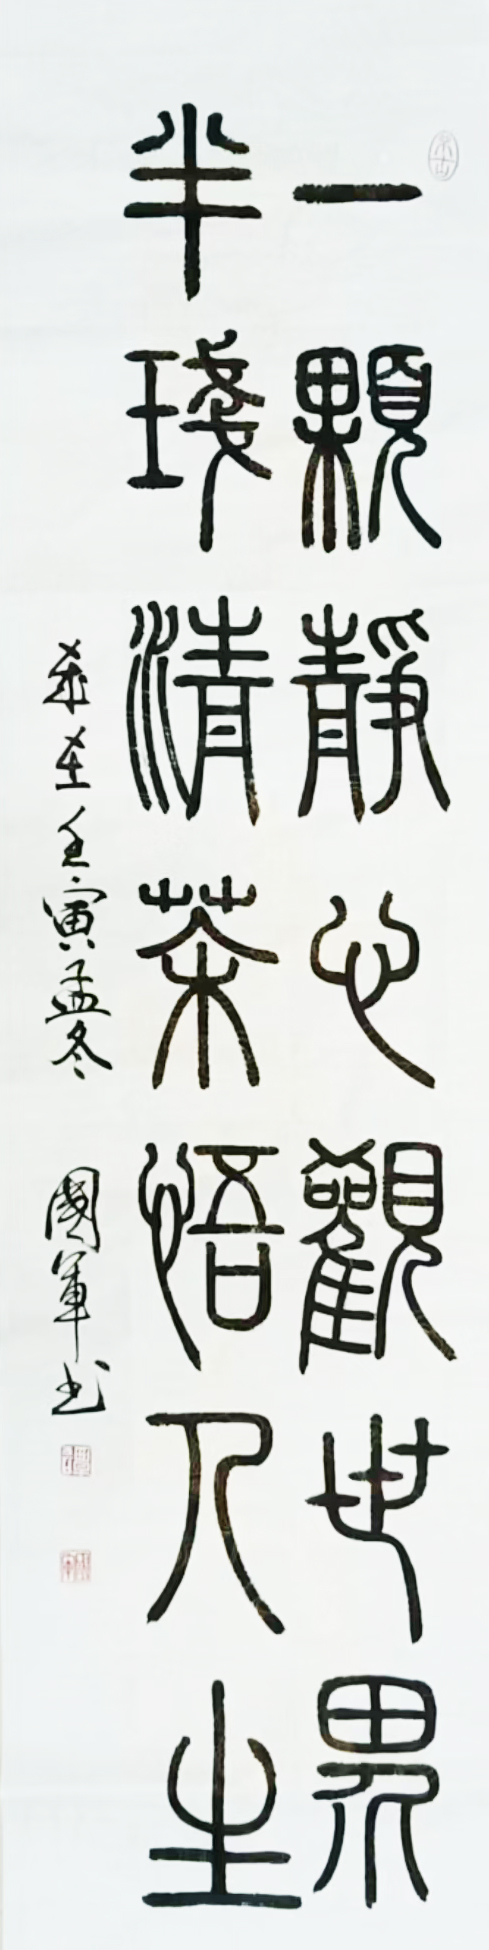 一顆靜心觀世界
半琖清茶悟人生
歲在壬寅孟冬 國軍书